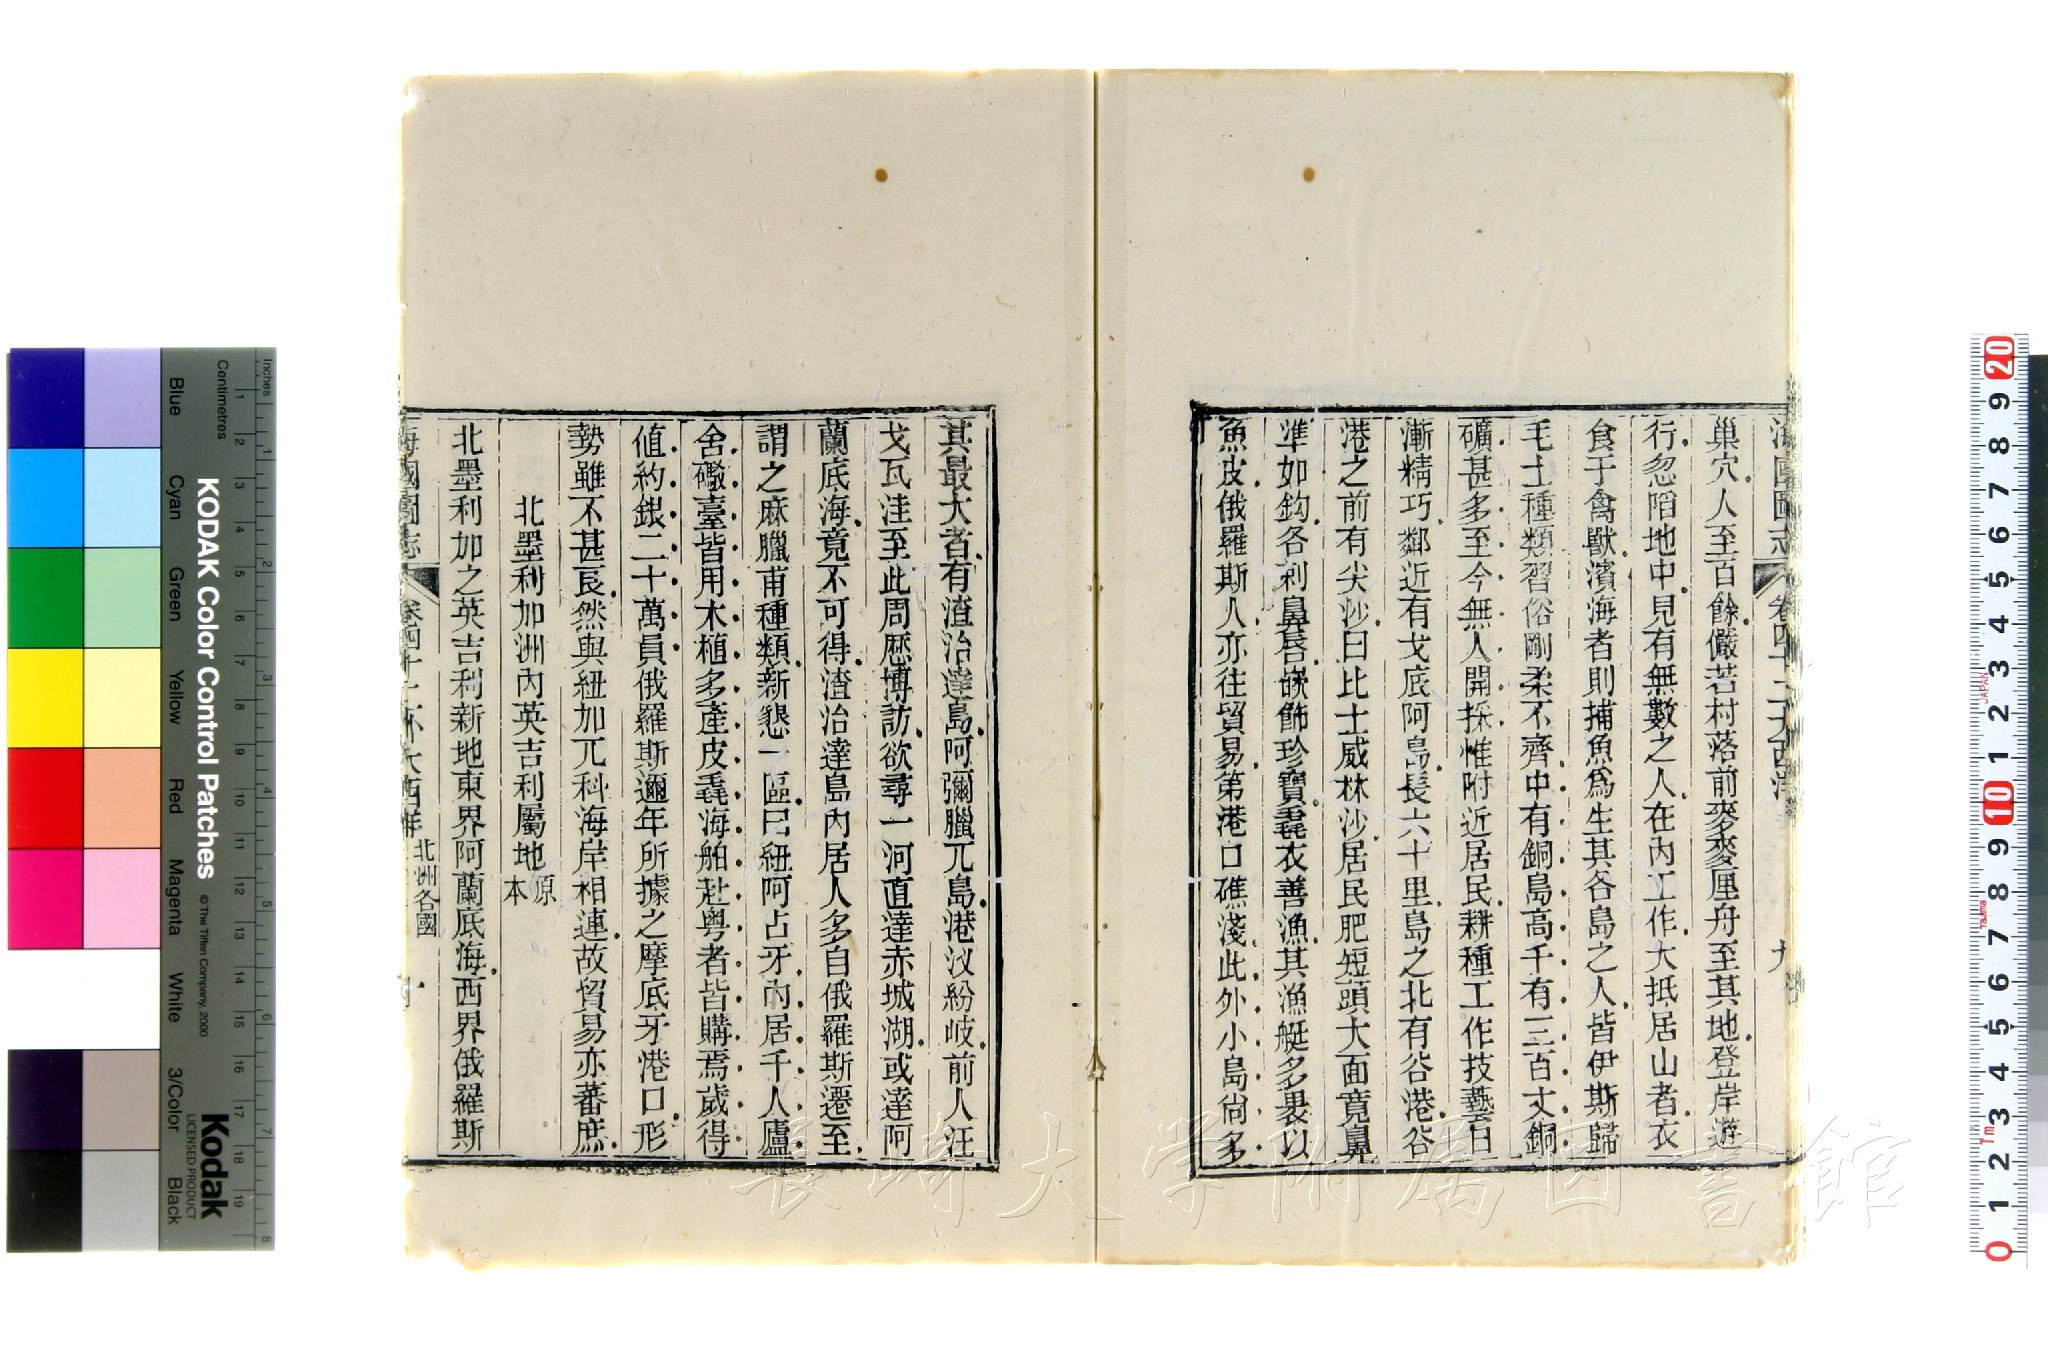 海國圖志
卷四十二 大西洋
九
巢穴人至百餘儼若村落前麥麥厘舟至其地登岸遊
行忽陷地中見有無數之人在內工作大抵居山者衣
食于禽獸濱海者則捕魚爲生其各島之人皆伊斯歸
毛士種類習俗剛柔不齊中有銅島高千有三百丈銅
礦甚多至今無人開採惟附近居民耕種工作技藝日
漸精巧鄰近有戈底阿島長六十里島之北有谷港谷
港之前有尖沙曰比士威林沙居民肥短頭大面寛鼻
準如鈎各剌鼻唇嵌飾珍寶毳衣善漁其漁艇多裹以
魚皮俄羅斯人亦往貿易第港口礁淺此外小島尙多
其最大者有渣治達島阿彌臘兀島港汊紛岐前人汪
戈瓦洼至此周歷博訪欲尋一河直達赤城湖或達阿
蘭底海竟不可得渣治達島內居人多自俄羅斯遷至
謂之麻臘甫種類新懇一區曰紐阿占牙內居千人廬
舍礮臺皆用木植多產皮毳海舶赴粤者皆購焉歲得
値約銀二十萬員俄羅斯邇年所據之摩底牙港口形
勢雖不甚長然與紐加兀科海岸相連故貿易亦蕃庶
北墨利加洲內英吉利屬地 原本
北墨利加之英吉利新地東界阿蘭底海西界俄羅斯
海國圖志
卷四十二 外大西洋 北洲各國
十
KODAK Color Control Patches
© The Tiffen Company, 2000
Kodak
LICENSED PRODUCT
Inches
Centimetres
Blue
Cyan
Green
Yellow
Red
Magenta
White
3/Color
Black
JAPAN
長崎大学附属図書館